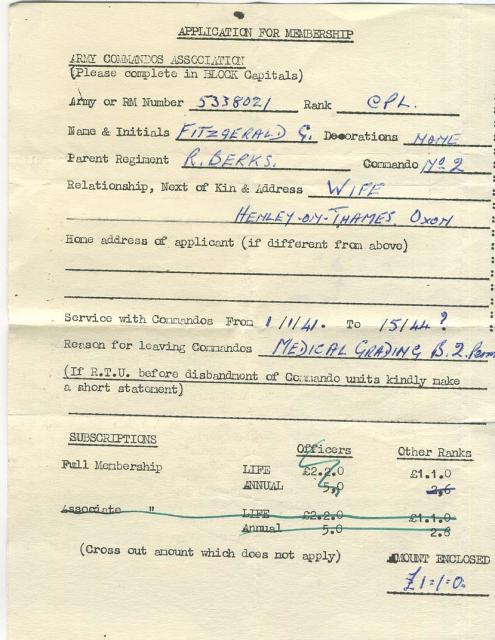 APPLICATION FOR MEMBERSHIP
ARMY COMMANDOS ASSOCIATION
(Please complete in BLOCK Capitals)
Army or RM Number 5338021 Rank CPL.
Name & Initials FITZGERALD G. Decorations NONE
Parent Regiment R. BERKS. Commando No 2
Relationship, Next of Kin & Address WIFE
HENLEY-ON-THAMES. OXON
Home address of applicant (if different from above)
Service with Commandos From 1/1/41. To 15/44?
Reason for leaving Commandos MEDICAL GRADING B.2. Perm
(If R.T.U. before disbandment of Commando units kindly make
a short statement)
SUBSCRIPTIONS
Officers Other Ranks
Full Membership LIFE £2.2.0 £1.1.0
ANNUAL 5.0 2.6
Associate " LIFE £2.2.0 £1.1.0
Annual 5.0 2.6
(Cross out amount which does not apply) AMOUNT ENCLOSED
£1=1=0.